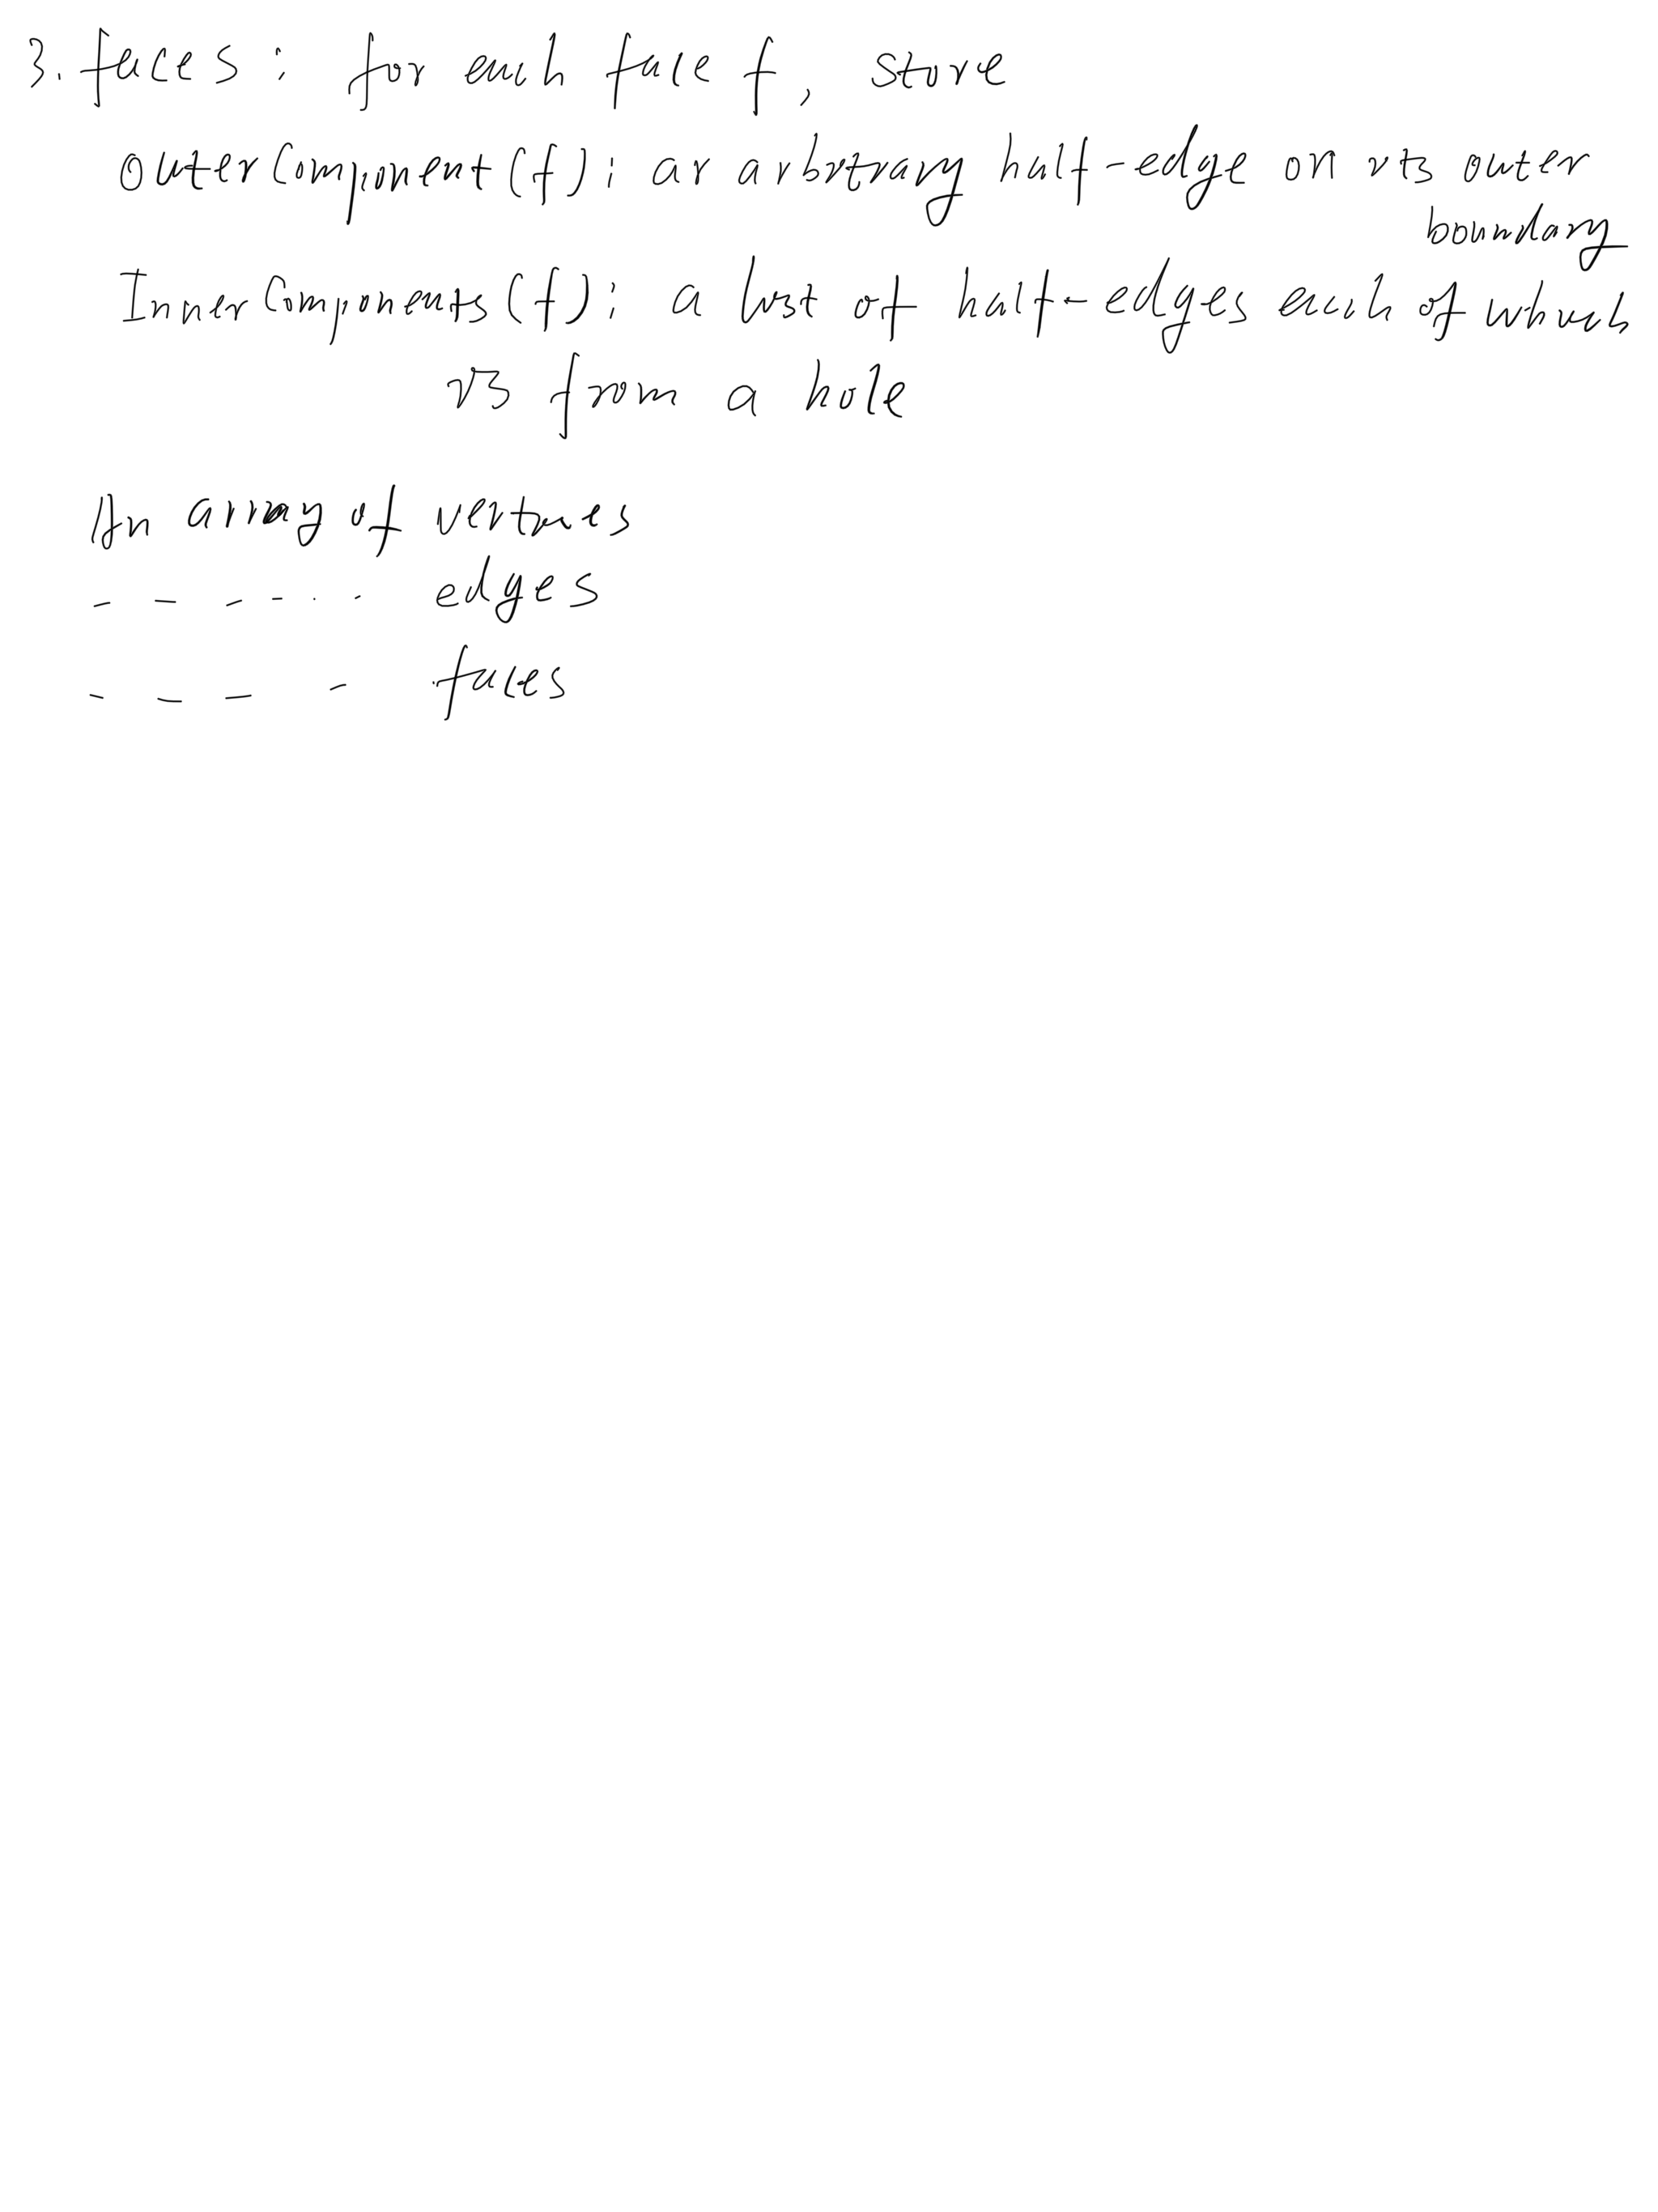 3. faces: for each face f, store
OuterComponent(f): ar arbitrary half-edge on its outer
boundary
InnerComponents(f): a list of half-edges each of which
is from a hole
An array of vertices
- - - - · - edges
- - - - faces